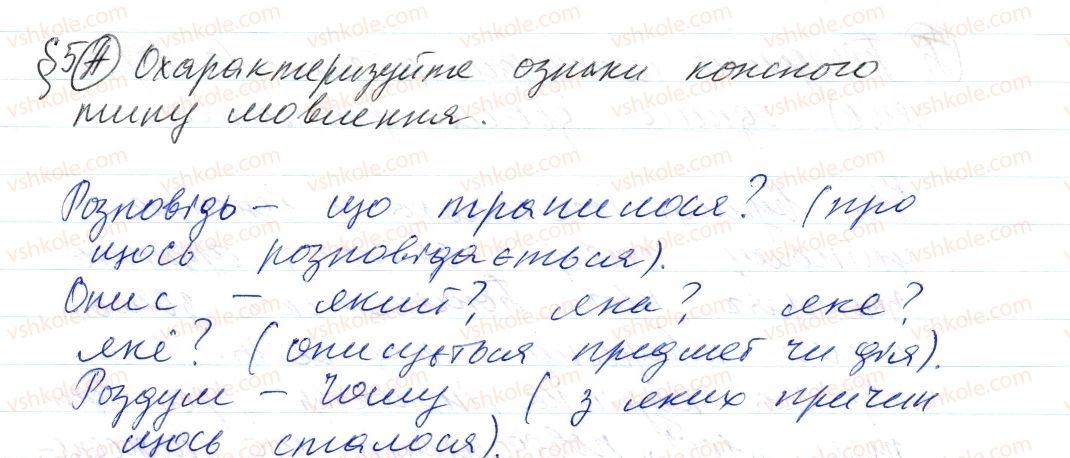 §5 А Охарактеризуйте ознаки кожного
типу мовлення.
Розповідь – що трапилося? (про
щось розповідається).
Опис – який? яка? яке?
які? (описується предмет чи дія).
Роздум – Чому (з яких причин
щось сталося).
vshkole.com